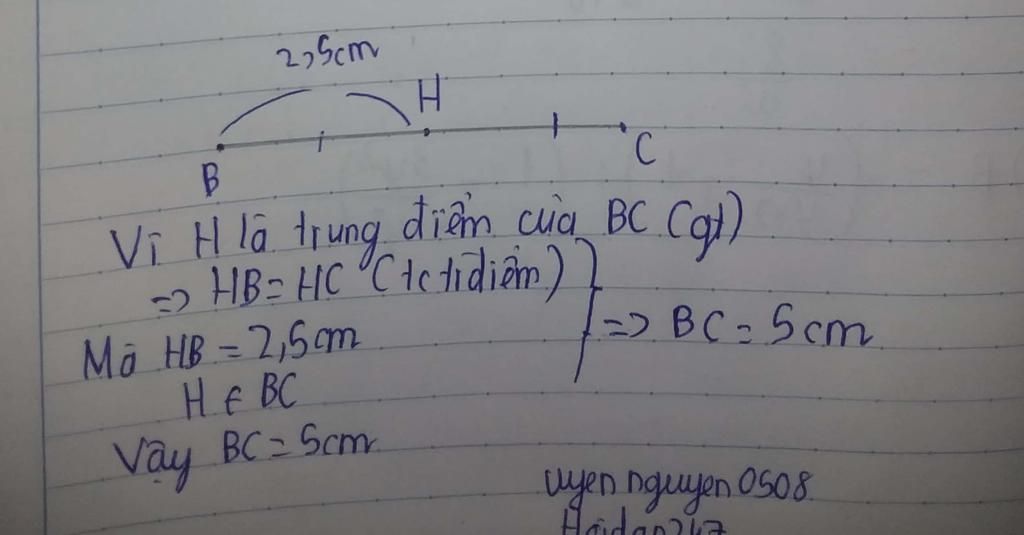 2,5cm
H
B
C
Vì H là trung điểm của BC (gt)
=> HB = HC (tc tđiểm)
Mà HB = 2,5cm
=> BC = 5cm
H ∈ BC
Vậy BC = 5cm
uyen nguyen 0508
Hoidap247